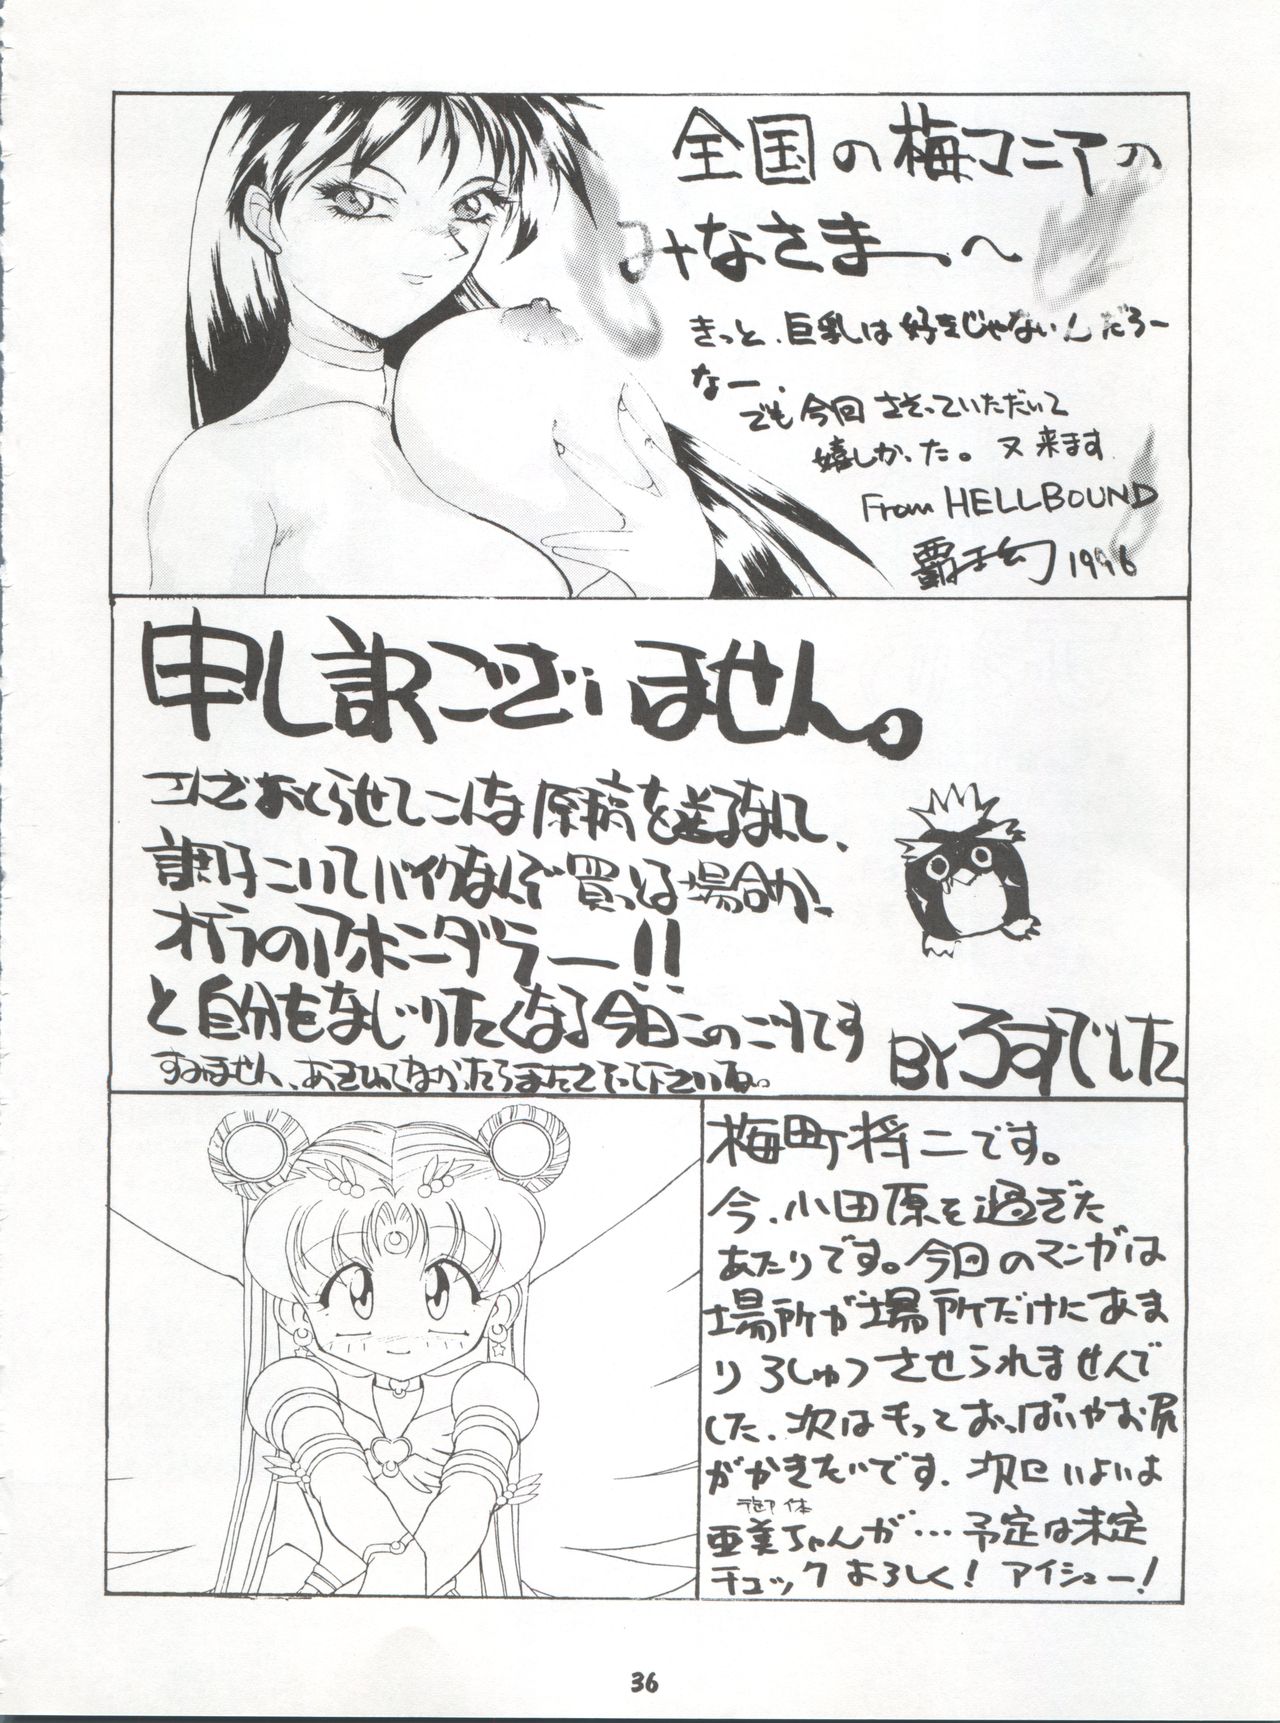 全国の梅マニアの
みなさまー、へ
きっと、巨乳は好きじゃないんだろー
なー、
でも今回さそっていただいて
嬉しかった。又来ます
From HELLBOUND
1996
申し訳ございません。
こんなおくらせてこんな原稿を送るなんて、
調子こいてバイクなんぞ買っとる場合か、
オデラのアホンダラー!!
と自分をなじりたくなる今日このごろです
すみません、あきれてなかったらまたさそって下さいね。
BYろすでぃした
梅町将二です。
今、小田原を過ぎた
あたりです。今回のマンガは
場所が場所だけにあま
りろしゅつさせられませんで
した、次はもっておっぱいやお尻
がかきたいです、次回いよいよ
御本体
亜美ちゃんが…予定は未定
チェックよろしく!アイシュー!
36